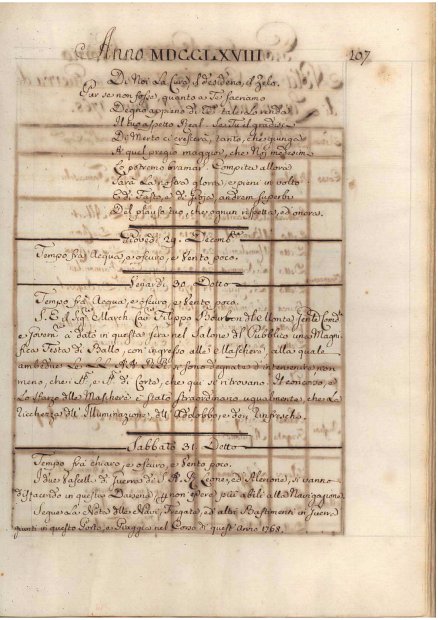 Anno MDCCLXVIII 207
Di Noi La Cura, il desiderio, il Zelo.
Che se non fosse, quanto a Te sacriamo
Degno appieno di Te, tale Lo renda
Il tuo aspetto Real. Se Tu il gradisci
Di Merto ei crescerà, tanto, che giunga
A quel pregio maggior, che Noi medesimi
Potremo bramar. Compita allora
Sarà La nostra gloria, e pieni in volto
E di Fasto, e di Gioja, andrem superbi
Del plauso tuo, che ognun rispetta, ed onora.
Giovedì 29. Decembre
Tempo fra Acqua, e oscuro, e Vento poco.
Venardi 30. Detto
Tempo fra Acqua, e oscuro, e Vento poco.
S. E. il Sigr. March. Cav. Filippo Bourbon del Monte
e Govern. à dato in questa sera nel Salone del Pubblico una Magni-
fica Festa di Ballo, con ingresso alle Maschere, alla quale
ambedue Le LL. AA. RR. si sono degnate d'intervenire, non
meno, che di Corte, che qui si trovano. Il concorso, e
Lo sfarzo delle Maschere è stato straordinario ugualmente, che La
Ricchezza dell'Illuminazione, dell'Addobbo, e dei Rinfreschi.
Sabbato 31. Detto
Tempo fra chiaro, e oscuro, e Vento poco.
I due Vascelli di Guerra di S. A. R. Leone, ed Alerione, si vanno
disfacendo in questa Darsena p non essere più abili alla Navigazione.
Segue La Nota delle Navi, Fregate, ed altri Bastimenti in Guerra
giunti in questo Porto, e Piaggia nel Corso di quest'Anno 1768.